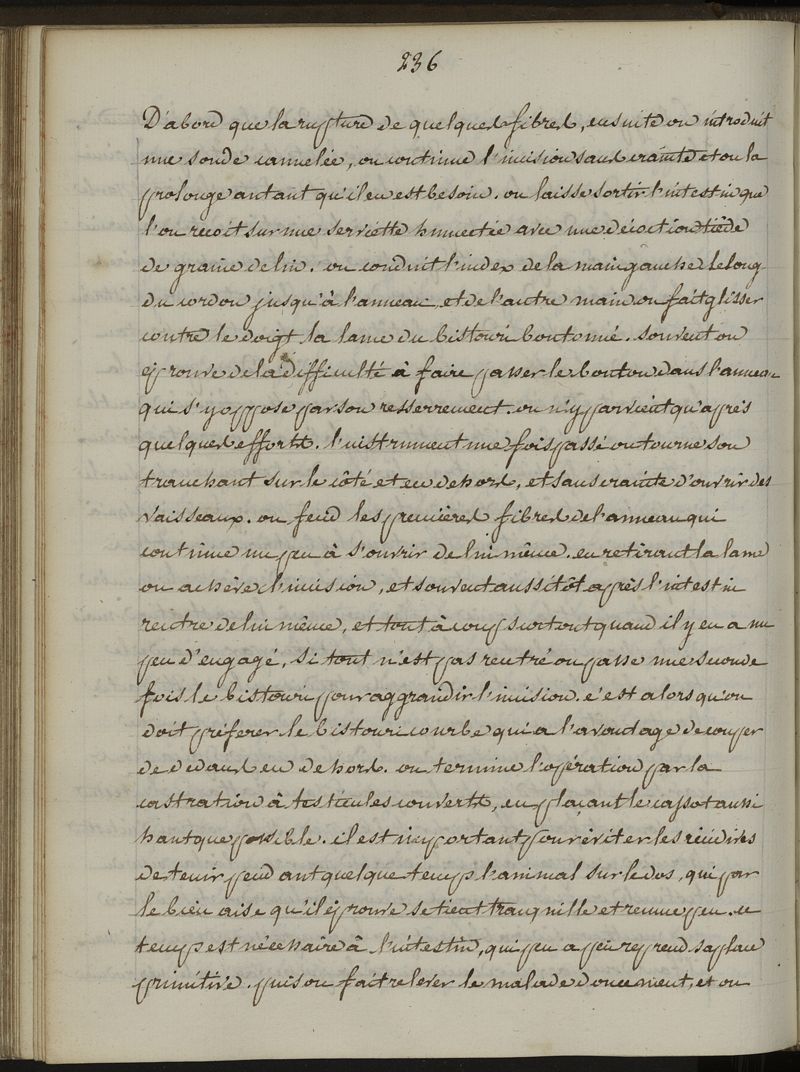 236
D'abord que la rupture de quelques fibres, ensuite on introduit
une sonde cannelée, on continue l'incision sans crainte et on la
prolonge autant qu'il en est besoin. on laisse sortir l'intestin que
l'on recoit sur une serviette humectée avec une décoction tiède
de graine de lin. on conduit l'index de la main gauche le long
du cordon jusqu'à l'anneau, et de l'autre main on fait glisser
contre le doigt la lame du bistouri boutonné. souvent on
éprouve de la difficulté à faire passer le bouton dans l'anneau
qui s'y oppose par son resserrement. on n'y parvient qu'après
quelques efforts. l'instrument une fois passé on tourne son
tranchant sur le côté et en dehors, et sans crainte d'ouvrir des
vaisseaux. on fend les premières fibres de l'anneau qui
continue un peu à s'ouvrir de lui même. en retirant la lame
on achève l'incision, et souvent aussitôt après l'intestin
rentre de lui même, et tout à coup surtout quand il y en a un
peu d'engagé. si tout n'est pas rentré on passe une seconde
fois le bistouri pour aggrandir l'incision. c'est alors qu'on
doit préferer le bistouri courbe qui a l'avantage de couper
de dedans en dehors. on termine l'opération par la
castration à testicules couverts, en plaçant le cassot aussi
haut que possible. il est important pour éviter les récidives
de tenir pendant quelque temps l'animal sur le dos, qui par
le bien aise qu'il éprouve se tient tranquille et remue peu. ce
temps est nécessaire à l'intestin, qui peu a peu reprend sa place
primitive. puis on fait relever le malade doucement, et on